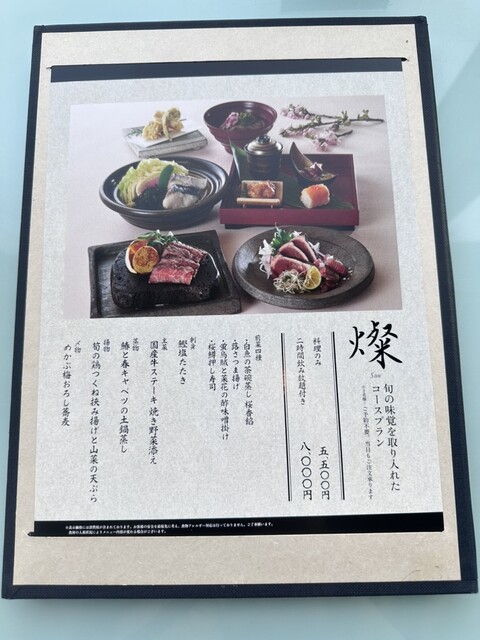 燦
San
旬の味覚を取り入れた
コースプラン
料理のみ
五、五〇〇円
二時間飲み放題付き
八、〇〇〇円
前菜四種
・白魚の茶碗蒸し 桜香餡
・蕗さつま揚げ
・蛍烏賊と菜花の酢味噌掛け
・桜鱒押し寿司
刺身
鰹塩たたき
主菜
国産牛ステーキ 焼き野菜添え
蒸物
鰆と春キャベツの土鍋蒸し
揚物
筍の鶏つくね挟み揚げと山菜の天ぷら
〆物
めかぶ梅おろし蕎麦